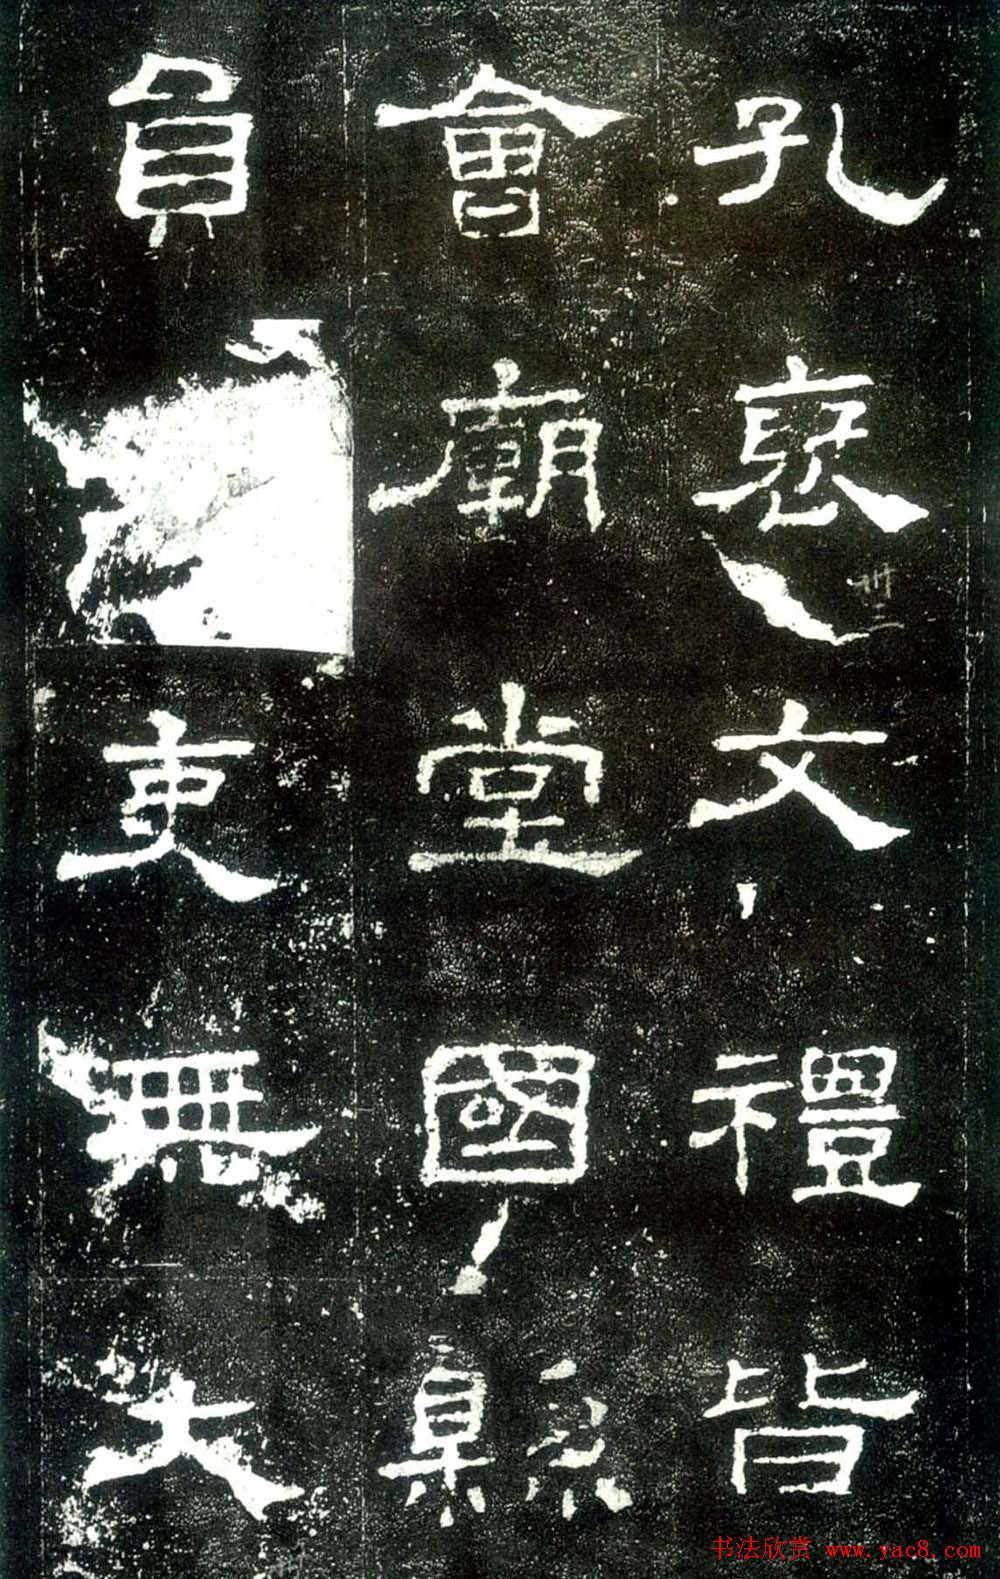 孔褒文禮皆
會廟堂國縣
員吏無大
书法欣赏 www.yac8.com